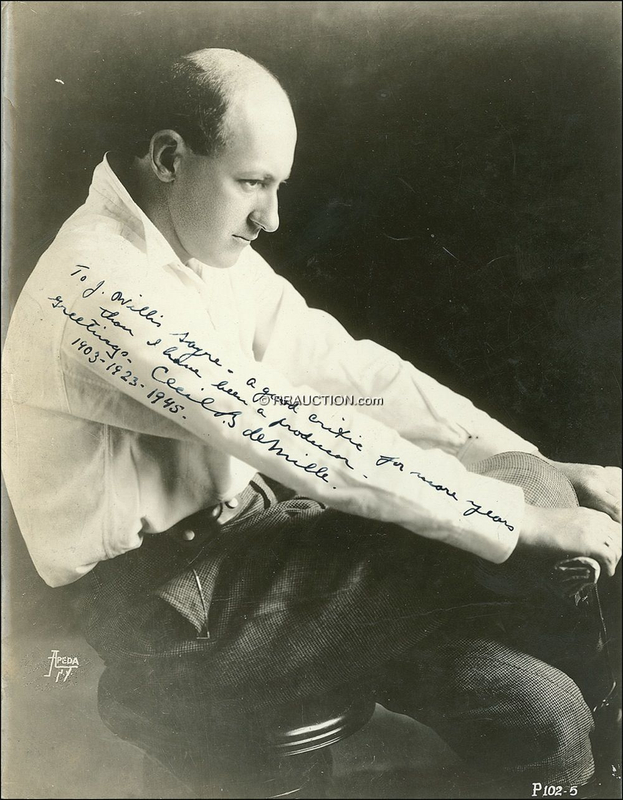 To J. Willis Sayre - a good critic for more years
than I have been a producer -
Greetings - Cecil B deMille.
1903-1923-1945.
©RRAUCTION.com
APEDA
N.Y.
P102-5